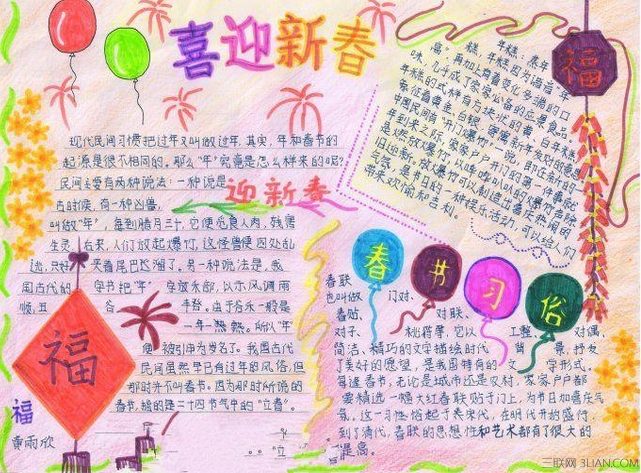 喜迎新春
现代民间习惯把过年又叫做过年.其实,年和春节的
起源是很不相同的。那么"年"究竟是怎么样来的呢?
民间主要有两种说法:一种说是
古时候,有一种凶兽,
叫做"年",每到腊月三十,它便
生灵。后来,人们放起爆竹,这怪兽便四处乱
夹着尾巴逃溜了。另一种说法是,我
国古代的 字节把"年" 以示风调雨
顺,五谷 由于谷禾一般是
一年一熟。所以"年"
便被引申为岁名了。我国古代
民间虽然早已有过年的风俗,但
那时并不叫春节。因为那时所说的
春节,指的是二十四节气中的"立春"。
迎新春
福
福
黄雨欣
糕,年糕:蒸年
糕,年糕因为谐音"年
高",再加上有着变化多端的口
味,几乎成了家家必备的应景食品。
年糕的式样有方块状的黄、白年糕,
象征着黄金、白银,寄寓新年发财的意思。
中国民间有"开门爆竹"一说。即在新的一
年到来之际,家家户户开门的第一件事就
是燃放爆竹,以哔哔叭叭的爆竹声除
旧迎新。放爆竹可以创造出喜庆热闹的
气氛,是节日的一种娱乐活动,可以给人们
带来欢愉和吉利。
福
春节习俗
春联
也叫做门对、
春贴、对联、
对子、桃符等,它以工整、对偶、
简洁、精巧的文字描绘时代背景,抒发
了美好的愿望,是我国特有的文学形式。
每逢春节,无论是城市还是农村,家家户户都
要精选一幅大红春联贴于门上,为节日加喜庆气
氛。这一习俗俗起于宋代,在明代开始盛行,
到了清代,春联的思想性和艺术都有了很大的
提高。
三联网 3LIAN.COM